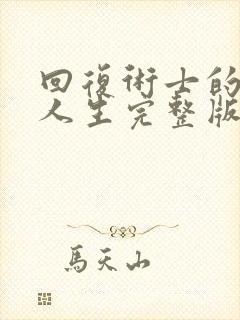 回復術士的
人生完整版
馬天山